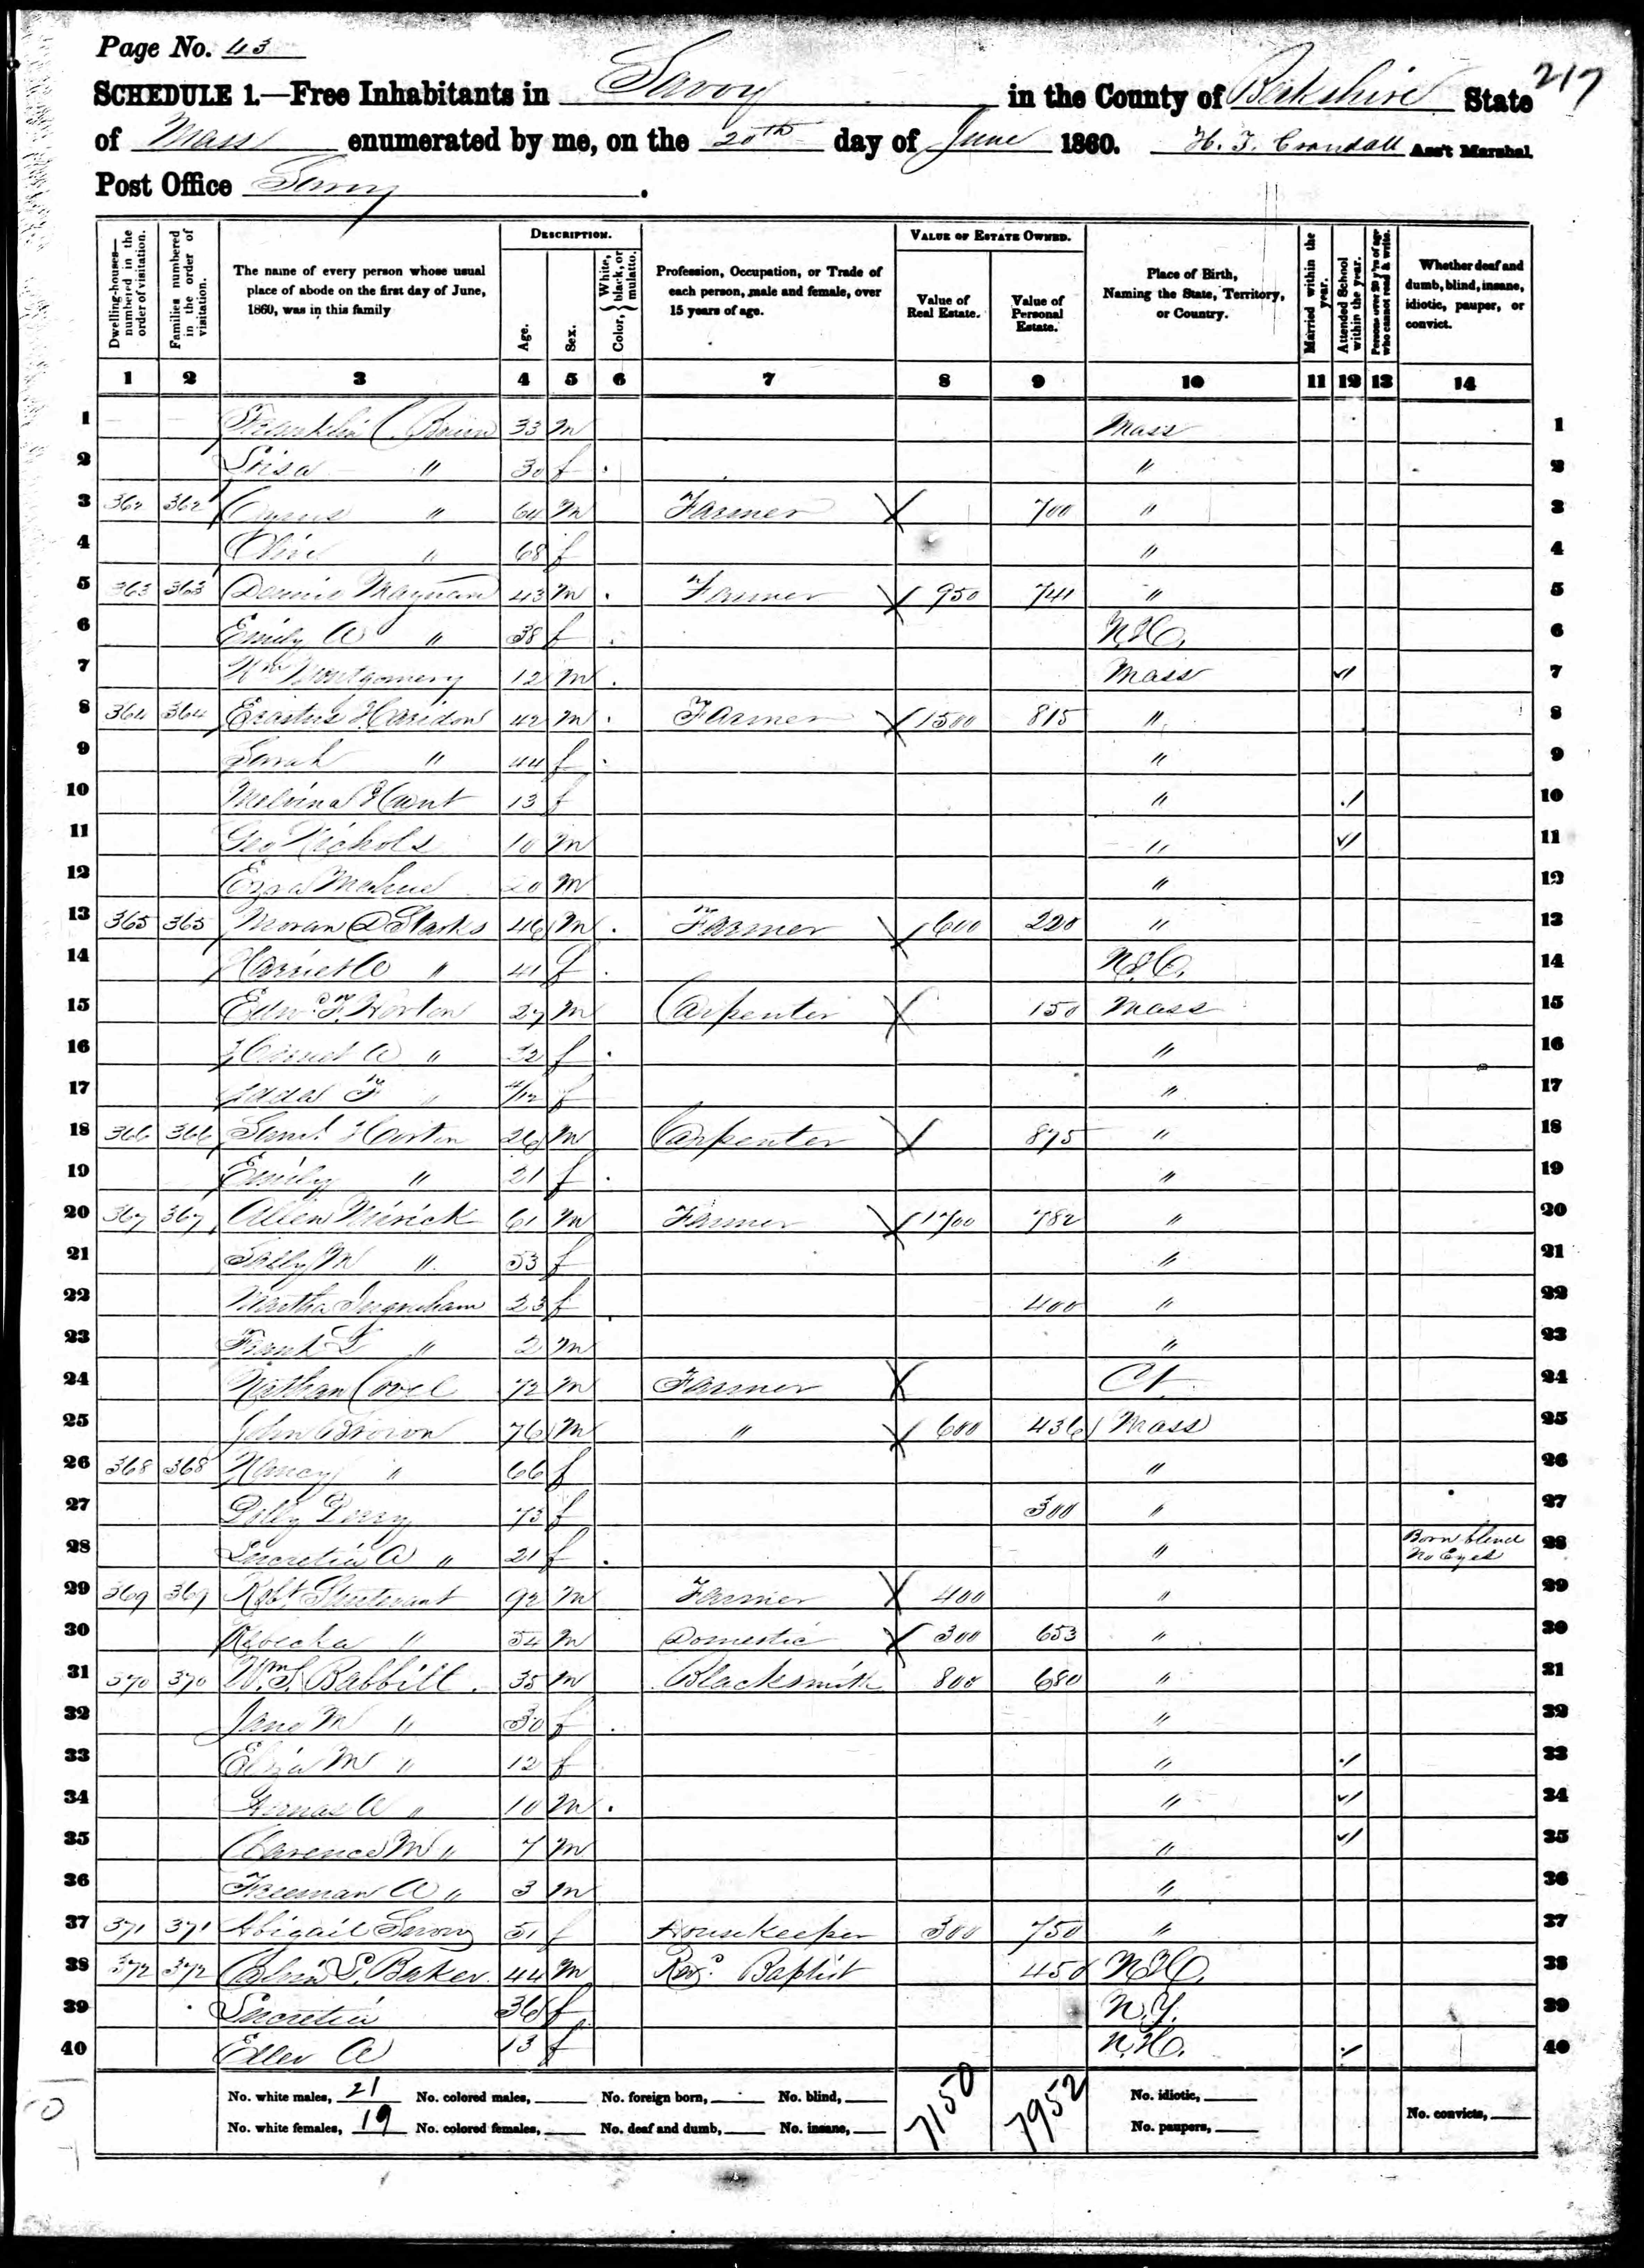 Page No. 43
217
SCHEDULE 1.—Free Inhabitants in Savoy in the County of Berkshire State
of Mass enumerated by me, on the 20th day of June 1860. H. F. Crandall Ass't Marshal.
Post Office Savoy.
Dwelling-houses—numbered in the order of visitation. Families numbered in the order of visitation. The name of every person whose usual place of abode on the first day of June, 1860, was in this family Description. Age. Sex. Color, White, black, or mulatto. Profession, Occupation, or Trade of each person, male and female, over 15 years of age. Value of Estate Owned. Value of Real Estate. Value of Personal Estate. Place of Birth, Naming the State, Territory, or Country. Married within the year. Attended School within the year. Persons over 20 y'rs of age who cannot read & write. Whether deaf and dumb, blind, insane, idiotic, pauper, or convict.
1 2 3 4 5 6 7 8 9 10 11 12 13 14
1 Franklin C. 33 m Mass 1
2 " 30 f " 2
3 362 362 Cyrus " 64 m Farmer 700 " 3
4 Olive " 68 f " 4
5 363 363 43 m Farmer 950 741 " 5
6 Emily A " 38 f 6
7 Wm Montgomery 12 m Mass 7
8 364 364 Erastus 42 m Farmer 1500 815 " 8
9 Sarah " 44 f " 9
10 Melvina 13 f " 10
11 Geo Nichols 10 m " 11
12 Ezra 20 m " 12
13 365 365 Moran D Starks 46 m Farmer 600 220 " 13
14 Harriet A " 41 f 14
15 Edwd F. Horton 27 m Carpenter 150 Mass 15
16 A " 32 f " 16
17 F " 4/12 f " 17
18 366 366 Saml Horton 26 m Carpenter 875 " 18
19 Emily " 21 f " 19
20 367 367 Allen Mirick 61 m Farmer 1700 782 " 20
21 Sally M " 53 f " 21
22 Martha Ingraham 23 f 400 " 22
23 Frank L " 2 m " 23
24 Nathan Covel 72 m Farmer Ct. 24
25 John Brown 76 m " 600 436 Mass 25
26 368 368 Nancy " 66 f " 26
27 Polly Perry 73 f 300 " 27
28 Lucretia A " 21 f " Born blind No Eyes 28
29 369 369 Robt Sturtevant 92 m Farmer 400 " 29
30 Rebecka " 54 m Domestic 300 653 " 30
31 370 370 Wm S. Babbitt 35 m Blacksmith 800 680 " 31
32 Jane M " 30 f " 32
33 Eliza M " 12 f " 33
34 A " 10 m " 34
35 Clarence M " 7 m " 35
36 Freeman A " 3 m " 36
37 371 371 Abigail 51 f Housekeeper 300 750 " 37
38 372 372 Baker 44 m Rev. Baptist 450 38
39 Lucretia 36 f N.Y. 39
40 A 13 f N.H. 40
No. white males, 21 No. colored males, No. foreign born, No. blind, 7150 7952 No. idiotic,
No. white females, 19 No. colored females, No. deaf and dumb, No. insane, No. paupers, No. convicts,